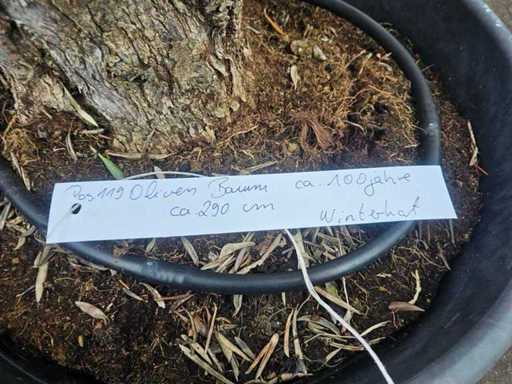 Pos 119 Oliven Baum ca. 100 jahre
ca 290 cm Winterhat